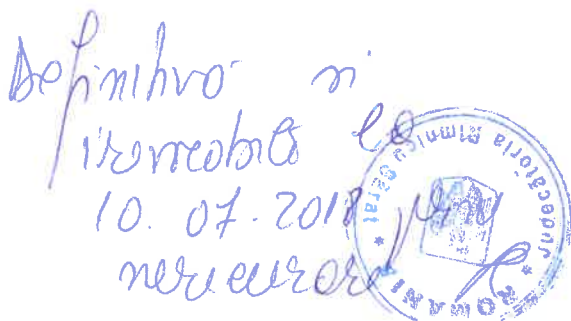 Definitivă și
irevocabilă la
10. 07. 2018 prin
nerecurare
* ROMÂNIA * Judecătoria Rîmnicu Sărat